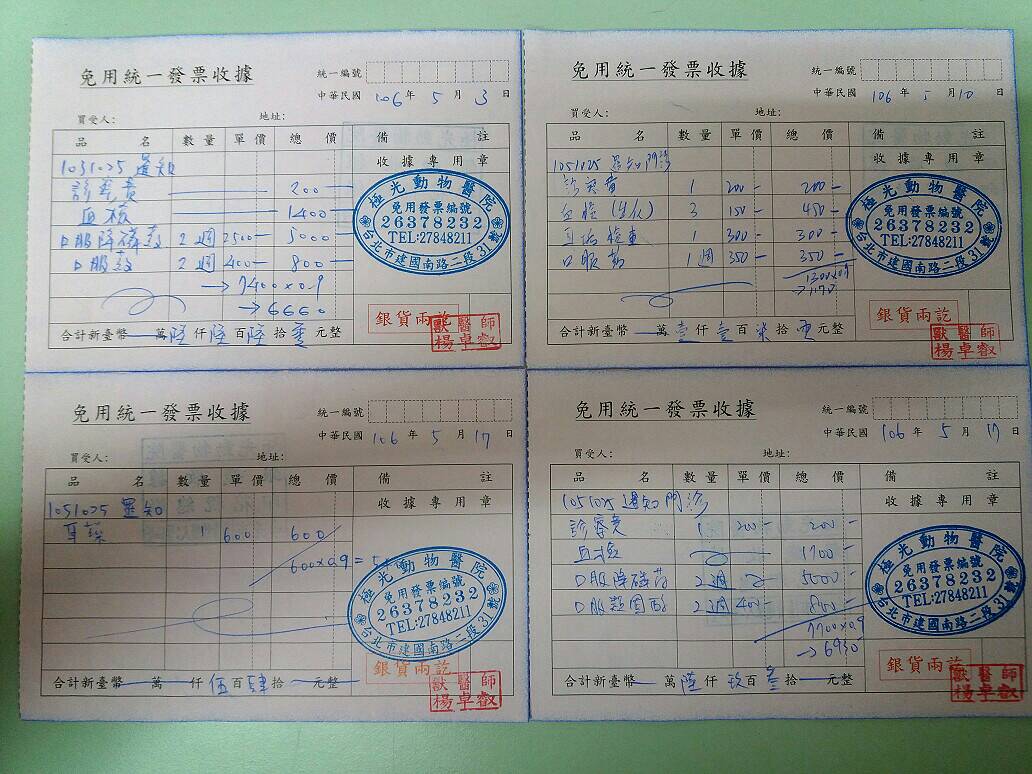 免用統一發票收據
統一編號
中華民國 106 年 5 月 3 日
買受人： 地址：
品名 數量 單價 總價 備註
1051025 暹知
收據專用章
診察費 200-
血檢 1400-
口服降磷藥 2週 2500- 5000-
口服藥 2週 400- 800-
→7400×0.9
→6660
極光動物醫院
免用發票編號
26378232
TEL:27848211
台北市建國南路二段31號
銀貨兩訖
合計新臺幣 萬陸仟陸百陸拾零元整
獸醫師
楊卓叡
免用統一發票收據
統一編號
中華民國 106 年 5 月 10 日
買受人： 地址：
品名 數量 單價 總價 備註
1051025 暹知門診
收據專用章
診察費 1 200- 200-
血檢(生化) 3 150- 450-
耳垢檢查 1 300- 300-
口服藥 1週 350- 350-
1300×0.9
→1170
極光動物醫院
免用發票編號
26378232
TEL:27848211
台北市建國南路二段31號
銀貨兩訖
合計新臺幣 萬壹仟壹百柒拾零元整
獸醫師
楊卓叡
免用統一發票收據
統一編號
中華民國 106 年 5 月 17 日
買受人： 地址：
品名 數量 單價 總價 備註
1051025 暹知
收據專用章
耳藥 1 600 600
600×0.9=
極光動物醫院
免用發票編號
26378232
TEL:27848211
台北市建國南路二段31號
銀貨兩訖
合計新臺幣 萬 仟伍百肆拾 元整
獸醫師
楊卓叡
免用統一發票收據
統一編號
中華民國 106 年 5 月 17 日
買受人： 地址：
品名 數量 單價 總價 備註
1051025 暹知門診
收據專用章
診察費 1 200- 200-
血檢 1700-
口服降磷藥 2週 5000-
口服類固醇 2週 400- 800-
7700×0.9
→6930
極光動物醫院
免用發票編號
26378232
TEL:27848211
台北市建國南路二段31號
銀貨兩訖
合計新臺幣 萬陸仟玖百叁拾 元整
獸醫師
楊卓叡